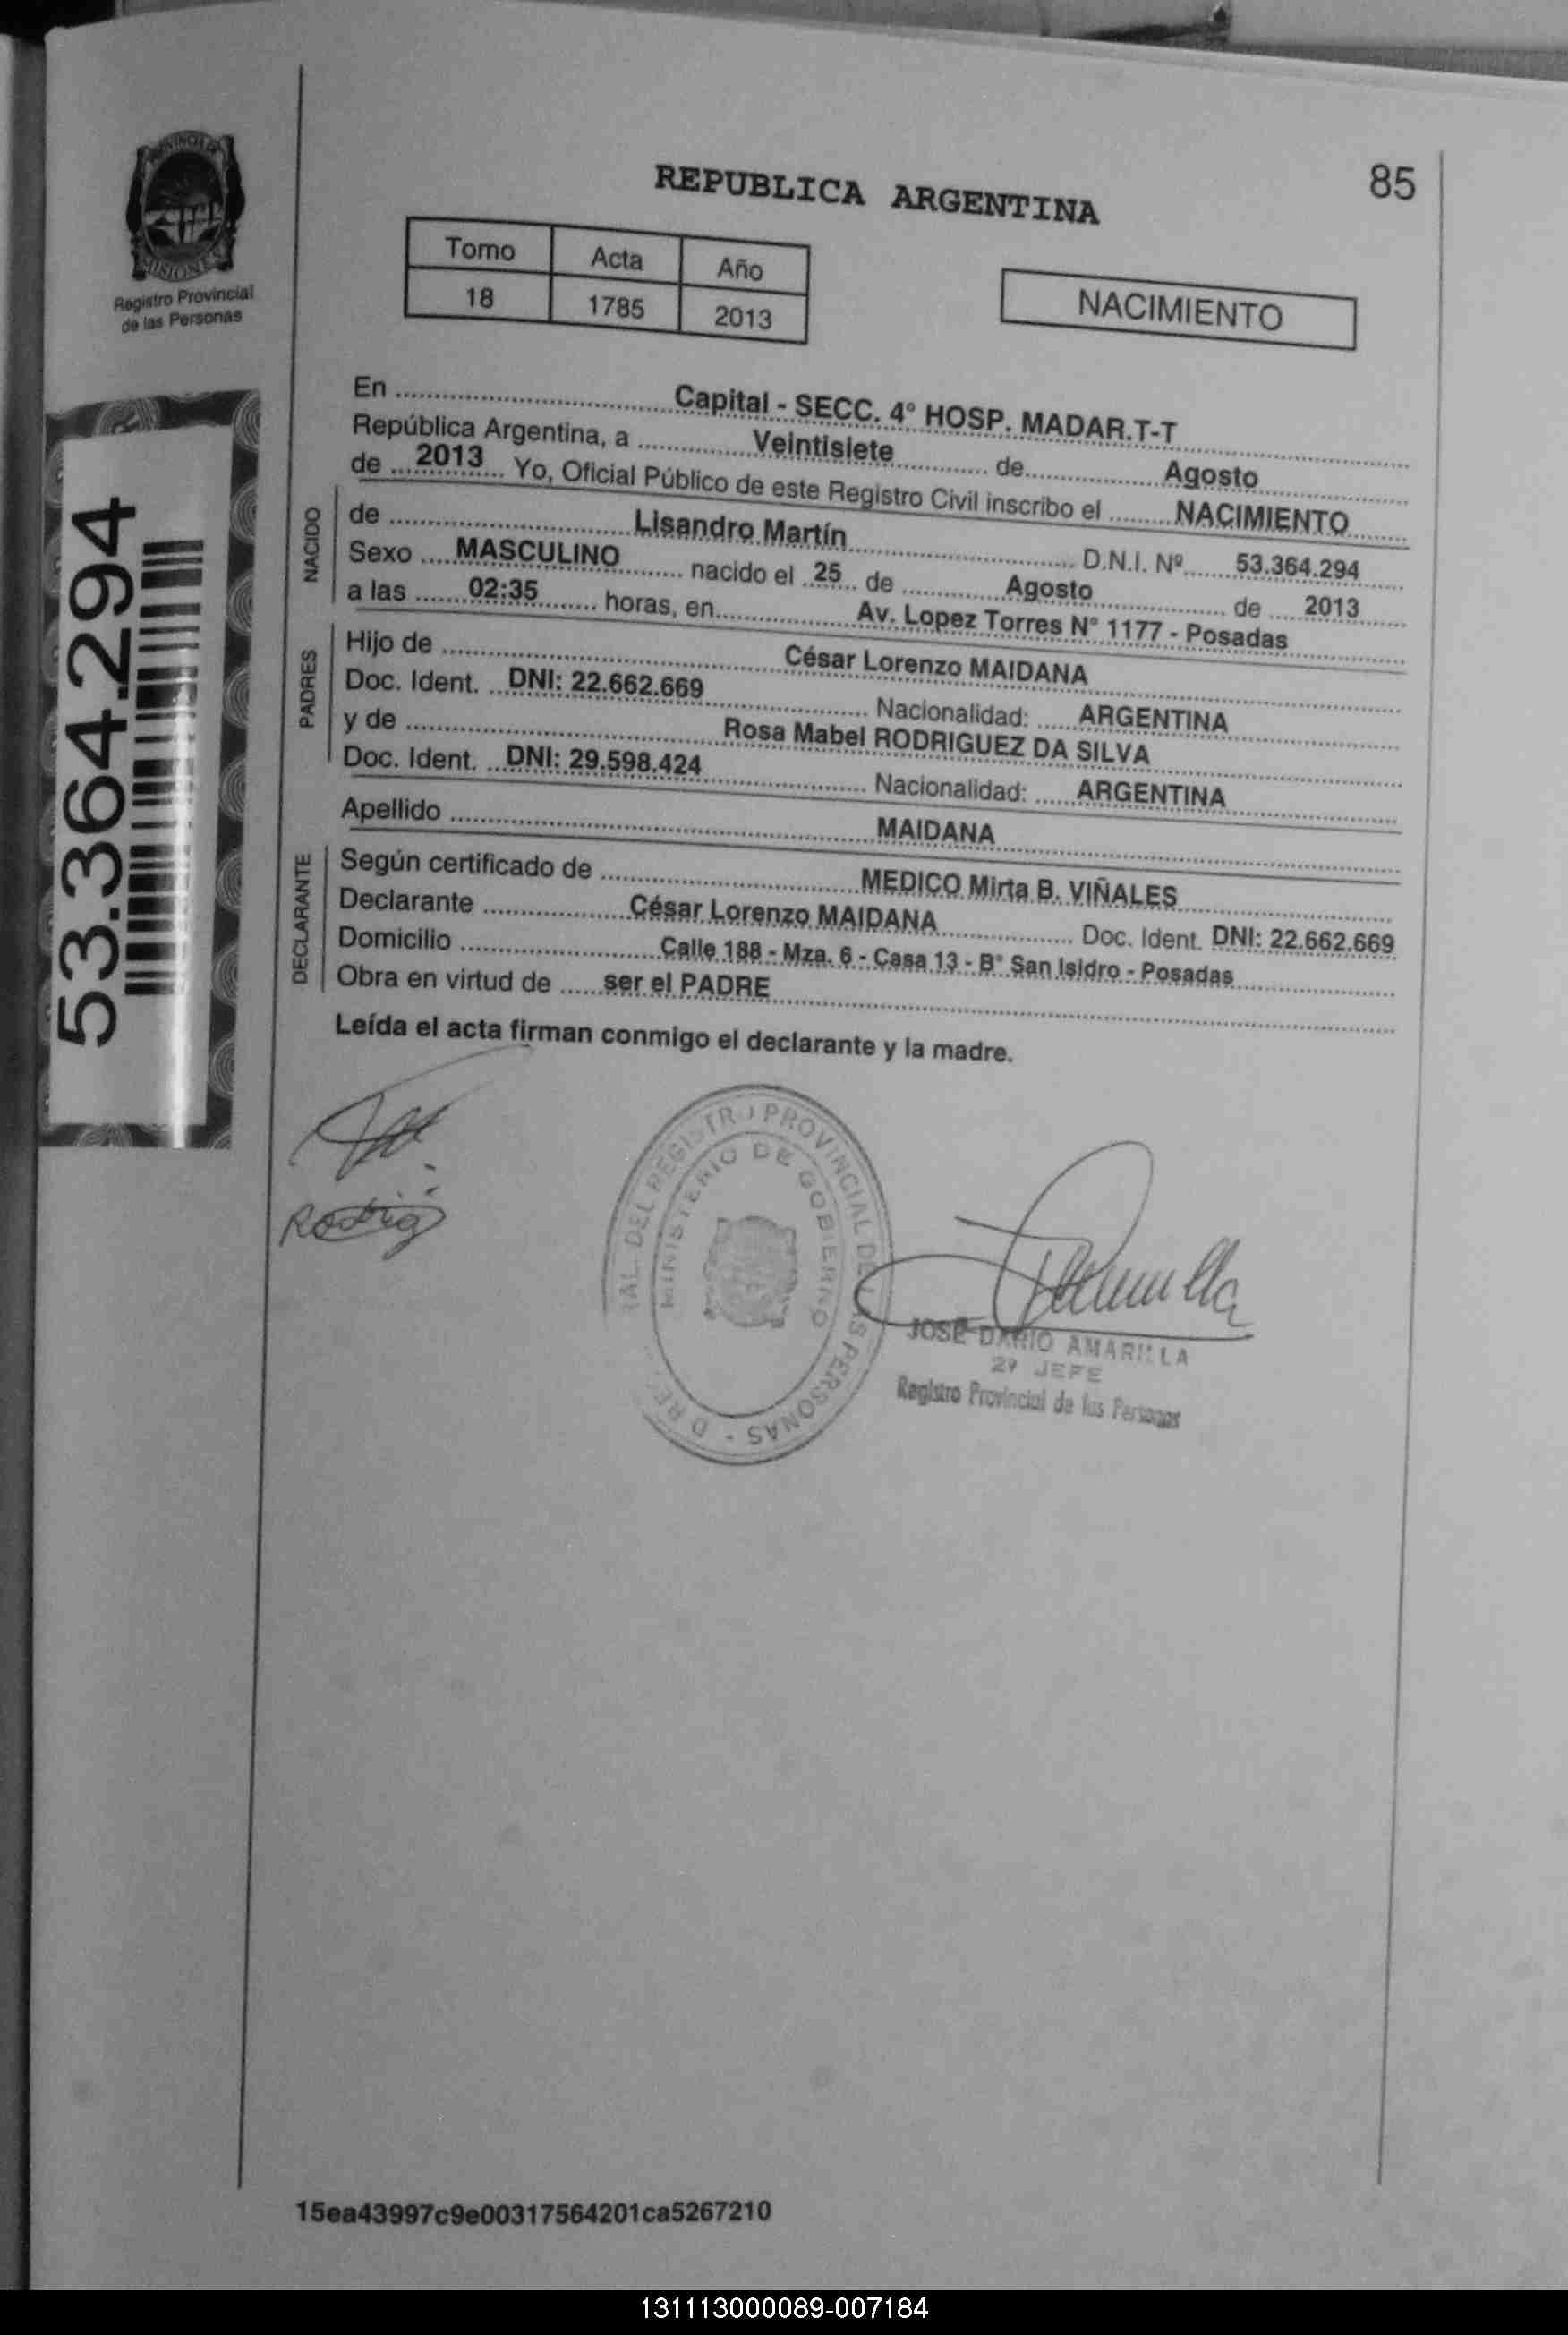 REPUBLICA ARGENTINA
85
PROVINCIA DE
MISIONES
Registro Provincial
de las Personas
Tomo Acta Año
18 1785 2013
NACIMIENTO
53.364.294
En Capital - SECC. 4° HOSP. MADAR.T-T
República Argentina, a Veintisiete de Agosto
de 2013 Yo, Oficial Público de este Registro Civil inscribo el NACIMIENTO
NACIDO
de Lisandro Martín D.N.I. Nº 53.364.294
Sexo MASCULINO nacido el 25 de Agosto de 2013
a las 02:35 horas, en Av. Lopez Torres N° 1177 - Posadas
PADRES
Hijo de César Lorenzo MAIDANA
Doc. Ident. DNI: 22.662.669 Nacionalidad: ARGENTINA
y de Rosa Mabel RODRIGUEZ DA SILVA
Doc. Ident. DNI: 29.598.424 Nacionalidad: ARGENTINA
Apellido MAIDANA
DECLARANTE
Según certificado de MEDICO Mirta B. VIÑALES
Declarante César Lorenzo MAIDANA Doc. Ident. DNI: 22.662.669
Domicilio Calle 188 - Mza. 6 - Casa 13 - B° San Isidro - Posadas
Obra en virtud de ser el PADRE
Leída el acta firman conmigo el declarante y la madre.
DEL REGISTRO PROVINCIAL DE LAS PERSONAS -
MINISTERIO DE GOBIERNO
JOSE DARIO AMARILLA
2º JEFE
Registro Provincial de las Personas
15ea43997c9e00317564201ca5267210
131113000089-007184